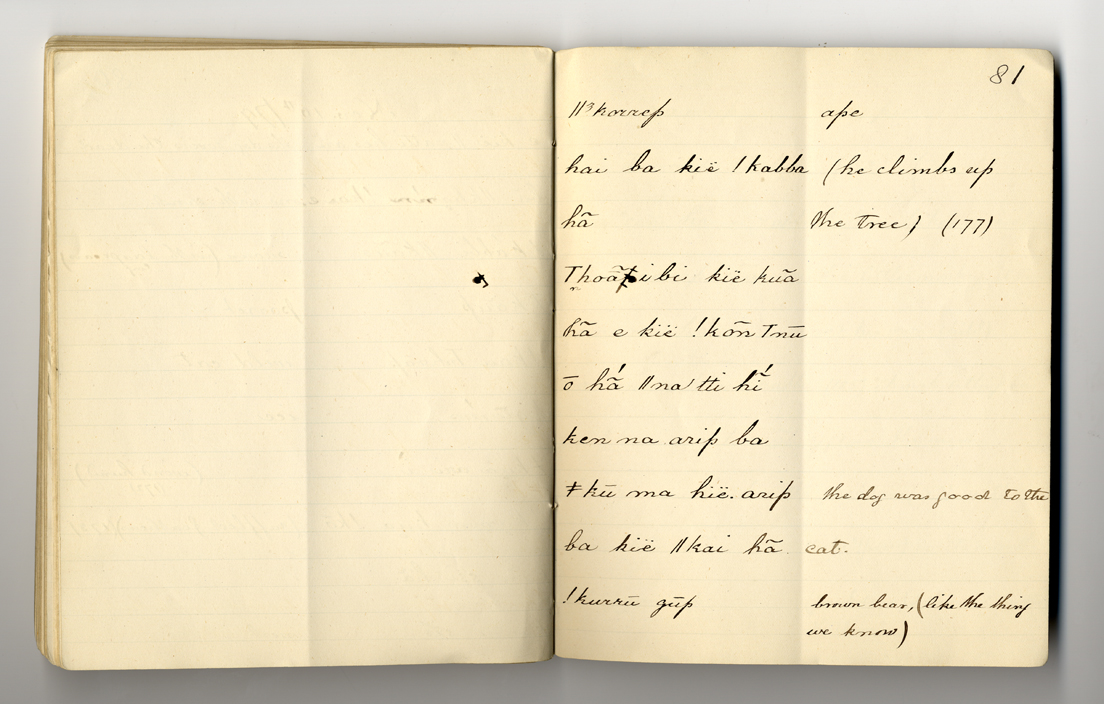 81
ǁ³korrep ape
hai ba kië !kabba (he climbs up
hã the tree) (177)
ibi kië kũã
hã e kië !kõn Tnū
ō hã́ ǁna'tti hí̆
ken na arip ba
ǂkū ma hië. arip the dog was good to the
ba kië ǁkai hã cat.
!kurrū gūp brown bear, (like the thing
we know)